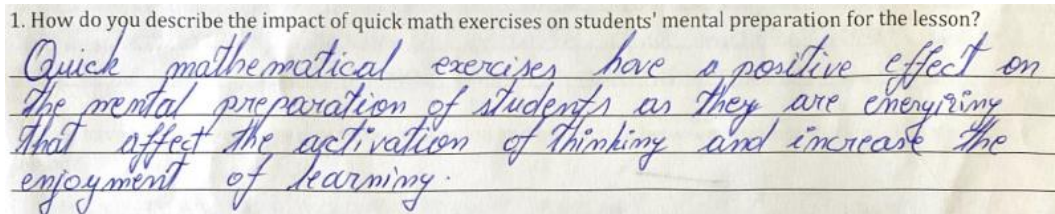 1. How do you describe the impact of quick math exercises on students' mental preparation for the lesson?
Quick mathematical exercises have a positive effect on
the mental preparation of students as they are energizing
that affect the activation of thinking and increase the
enjoyment of learning.